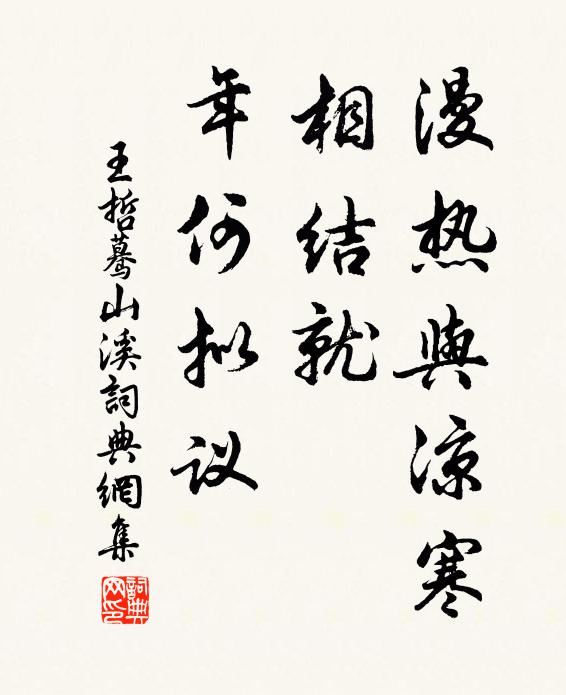 漫热與凉寒
相结就
年何拟议
王哲蓦山溪詞典網集
詞典网印